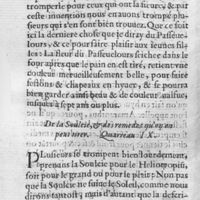 tromperie pour ceux qui ont la fieure, & par
cette inuention nous en auons trompé plu-
sieurs qui s'en sont bien trouués. Que ce soit
icy la derniere chose que je diray du Passeue-
lours, & ce pour faire plaisir aux jeunes fil-
les: La fleur du Passeuelours seichee dans le
four apres que le pain en est tiré, retient viue
couleur merueilleusement belle, pour faire
festons & chapeaux en hyuer, & se pourra
bien garder ainsi beau & de couleur naïfue
iusques à sept ans ou plus.
De la Soulcie, & des remedes qu'on en
peut tirer. Quarreau I X.
PLusieurs se trompent bien lourdement,
prenans la Soulcie pour le Heliotropi,
soit pour le grand ou pour le petit: Non pas
que la Soulcie ne suiue le Soleil, comme nous
dirons tantost, mais d'autant que la descri-